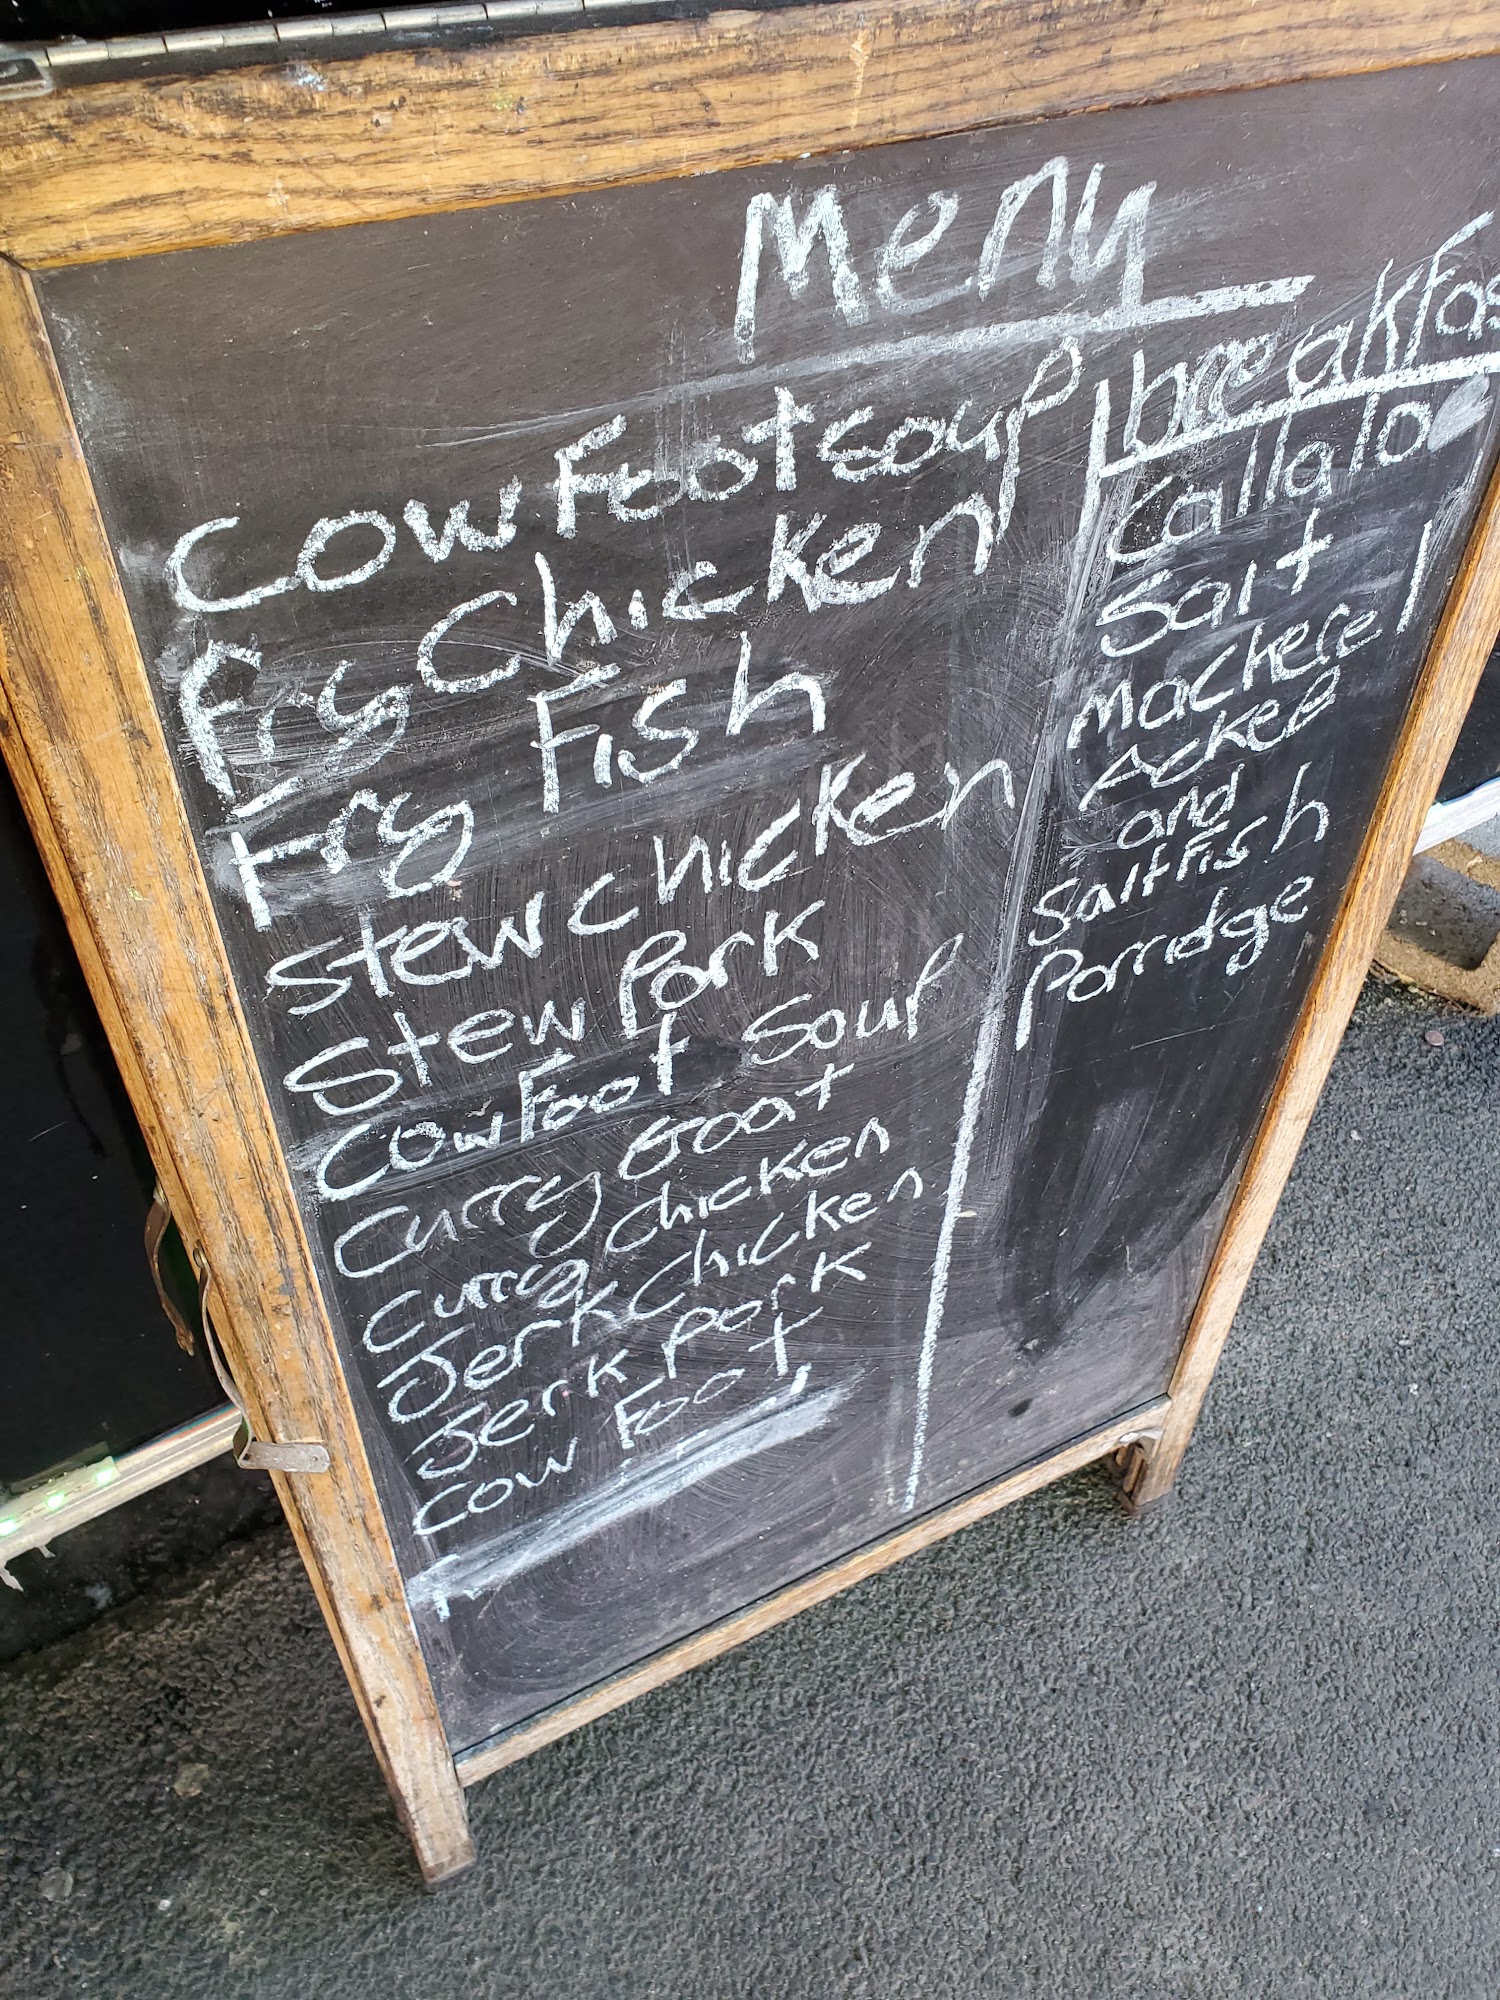 Menu
Cow Foot soup
Fry Chicken
Fry Fish
Stew Chicken
Stew Pork
Cow Foot Soup
Curry Goat
Curry Chicken
Jerk Chicken
Jerk pork
Cow Foot
breakfas
Callaloo
Salt
Mackerel
Ackee
and
Saltfish
Porridge